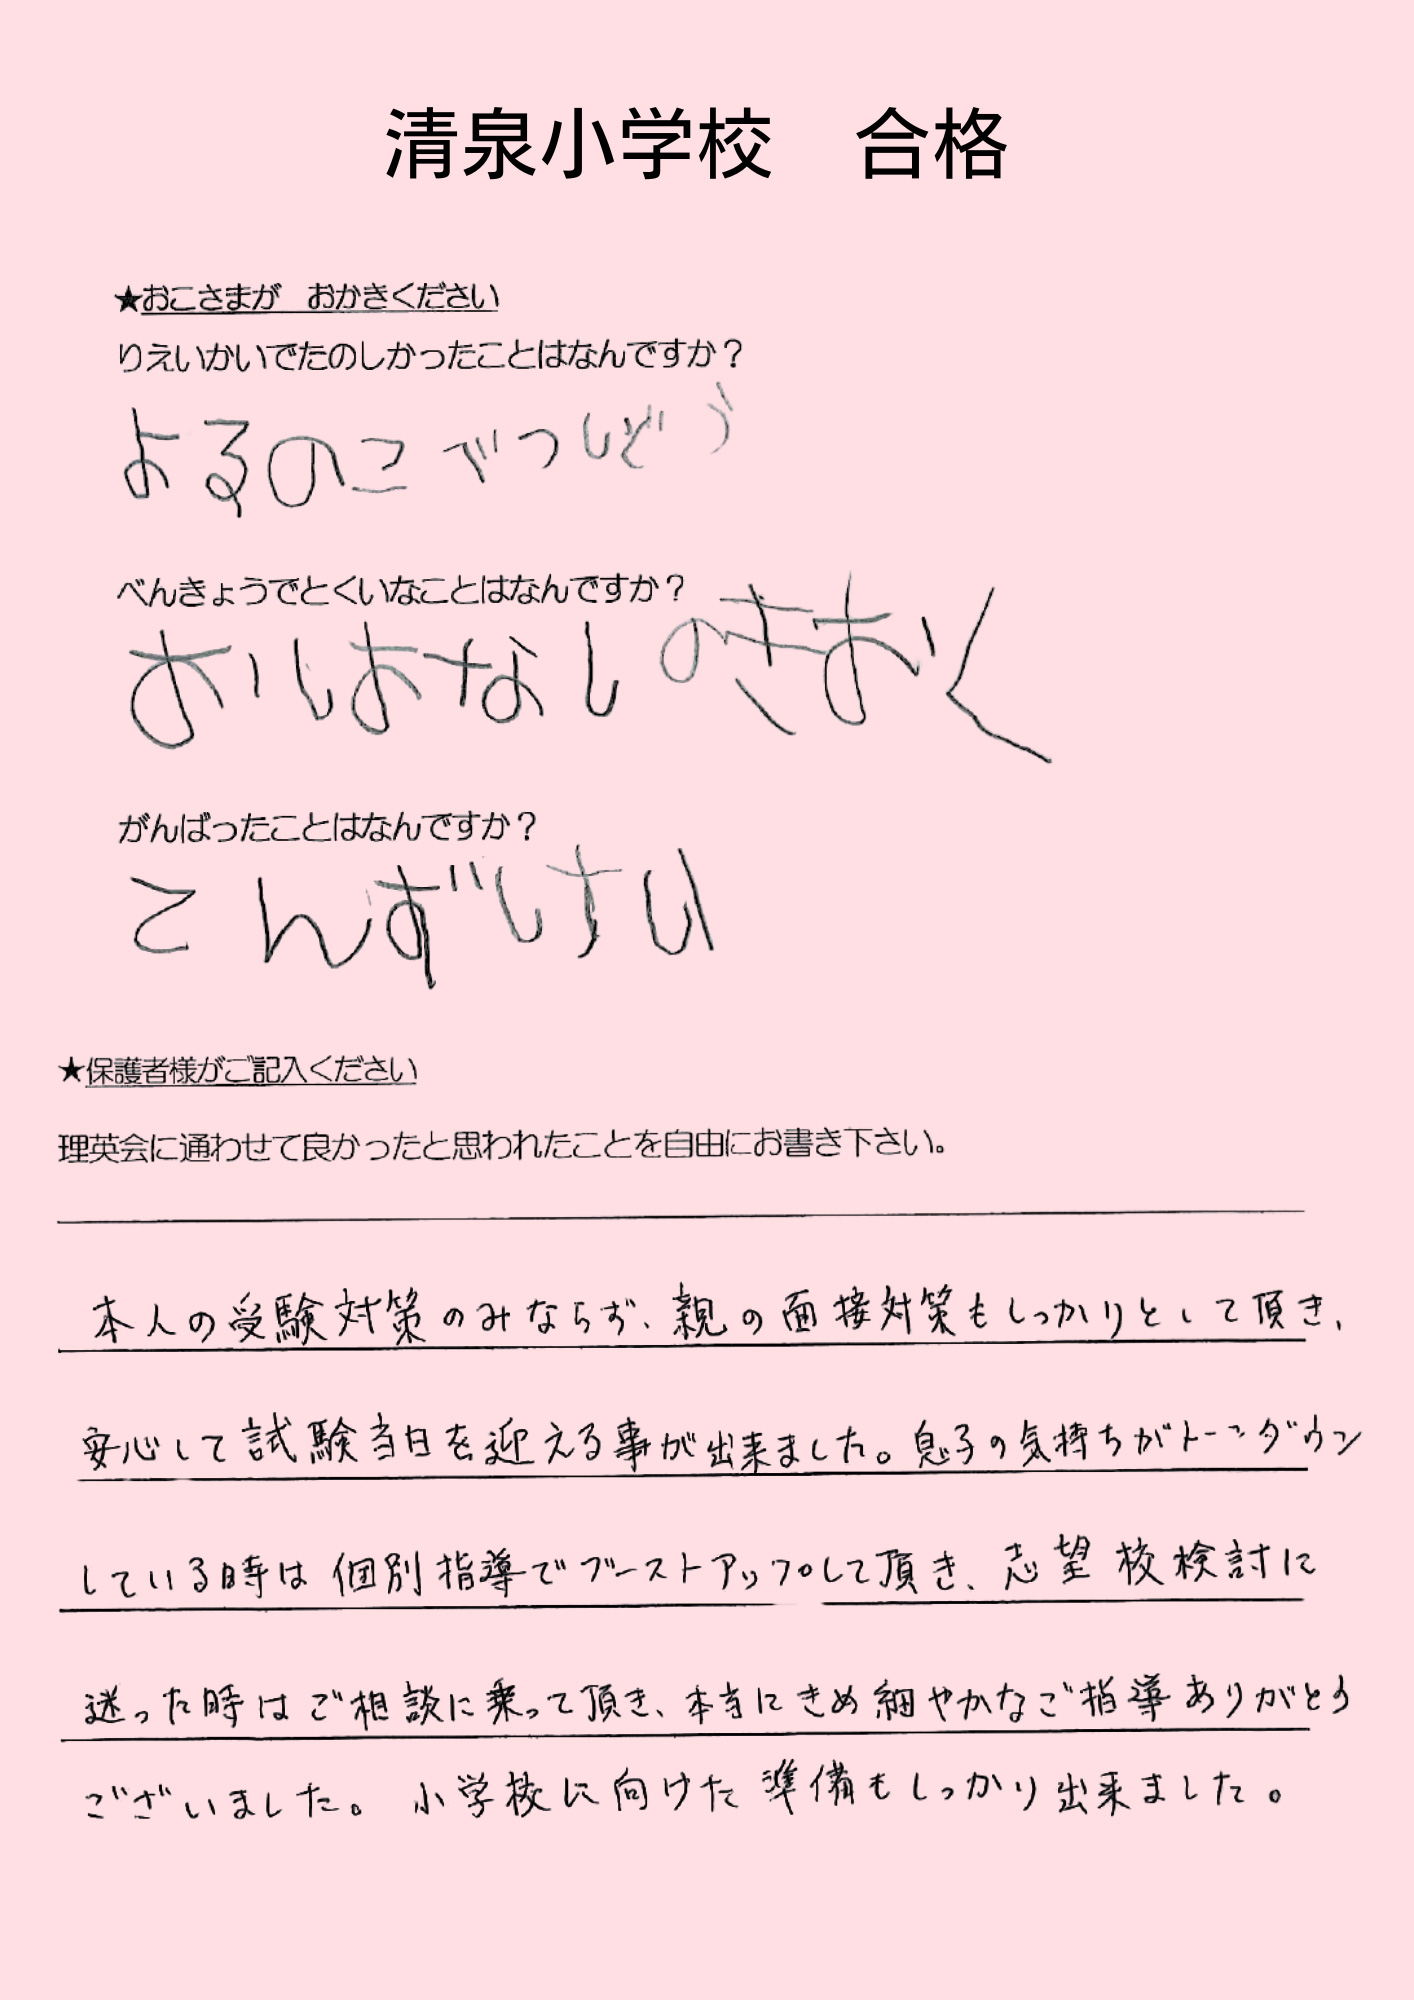 清泉小学校　合格
★おこさまが　おかきください
りえいかいでたのしかったことはなんですか？
よるのこべつしどう
べんきょうでとくいなことはなんですか？
おはなしのきおく
がんばったことはなんですか？
てんずけい
★保護者様がご記入ください
理英会に通わせて良かったと思われたことを自由にお書き下さい。
本人の受験対策のみならず、親の面接対策もしっかりとして頂き、
安心して試験当日を迎える事が出来ました。息子の気持ちがトーンダウン
している時は個別指導でブーストアップして頂き、志望校検討に
迷った時はご相談に乗って頂き、本当にきめ細やかなご指導ありがとう
ございました。小学校に向けた準備もしっかり出来ました。